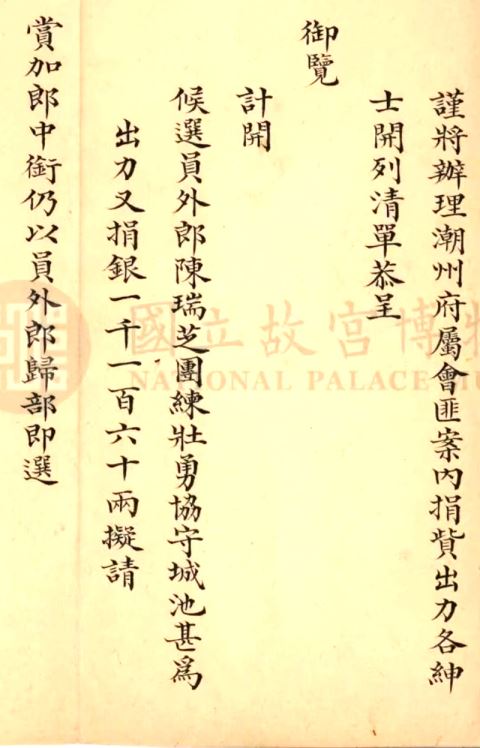 謹將辦理潮州府屬會匪案內捐貲出力各紳
士開列清單恭呈
御覽
計開
候選員外郎陳瑞芝團練壯勇協守城池甚爲
出力又捐銀一千一百六十兩擬請
賞加郎中銜仍以員外郎歸部即選
國立故宮博物
NATIONAL PALACE MU